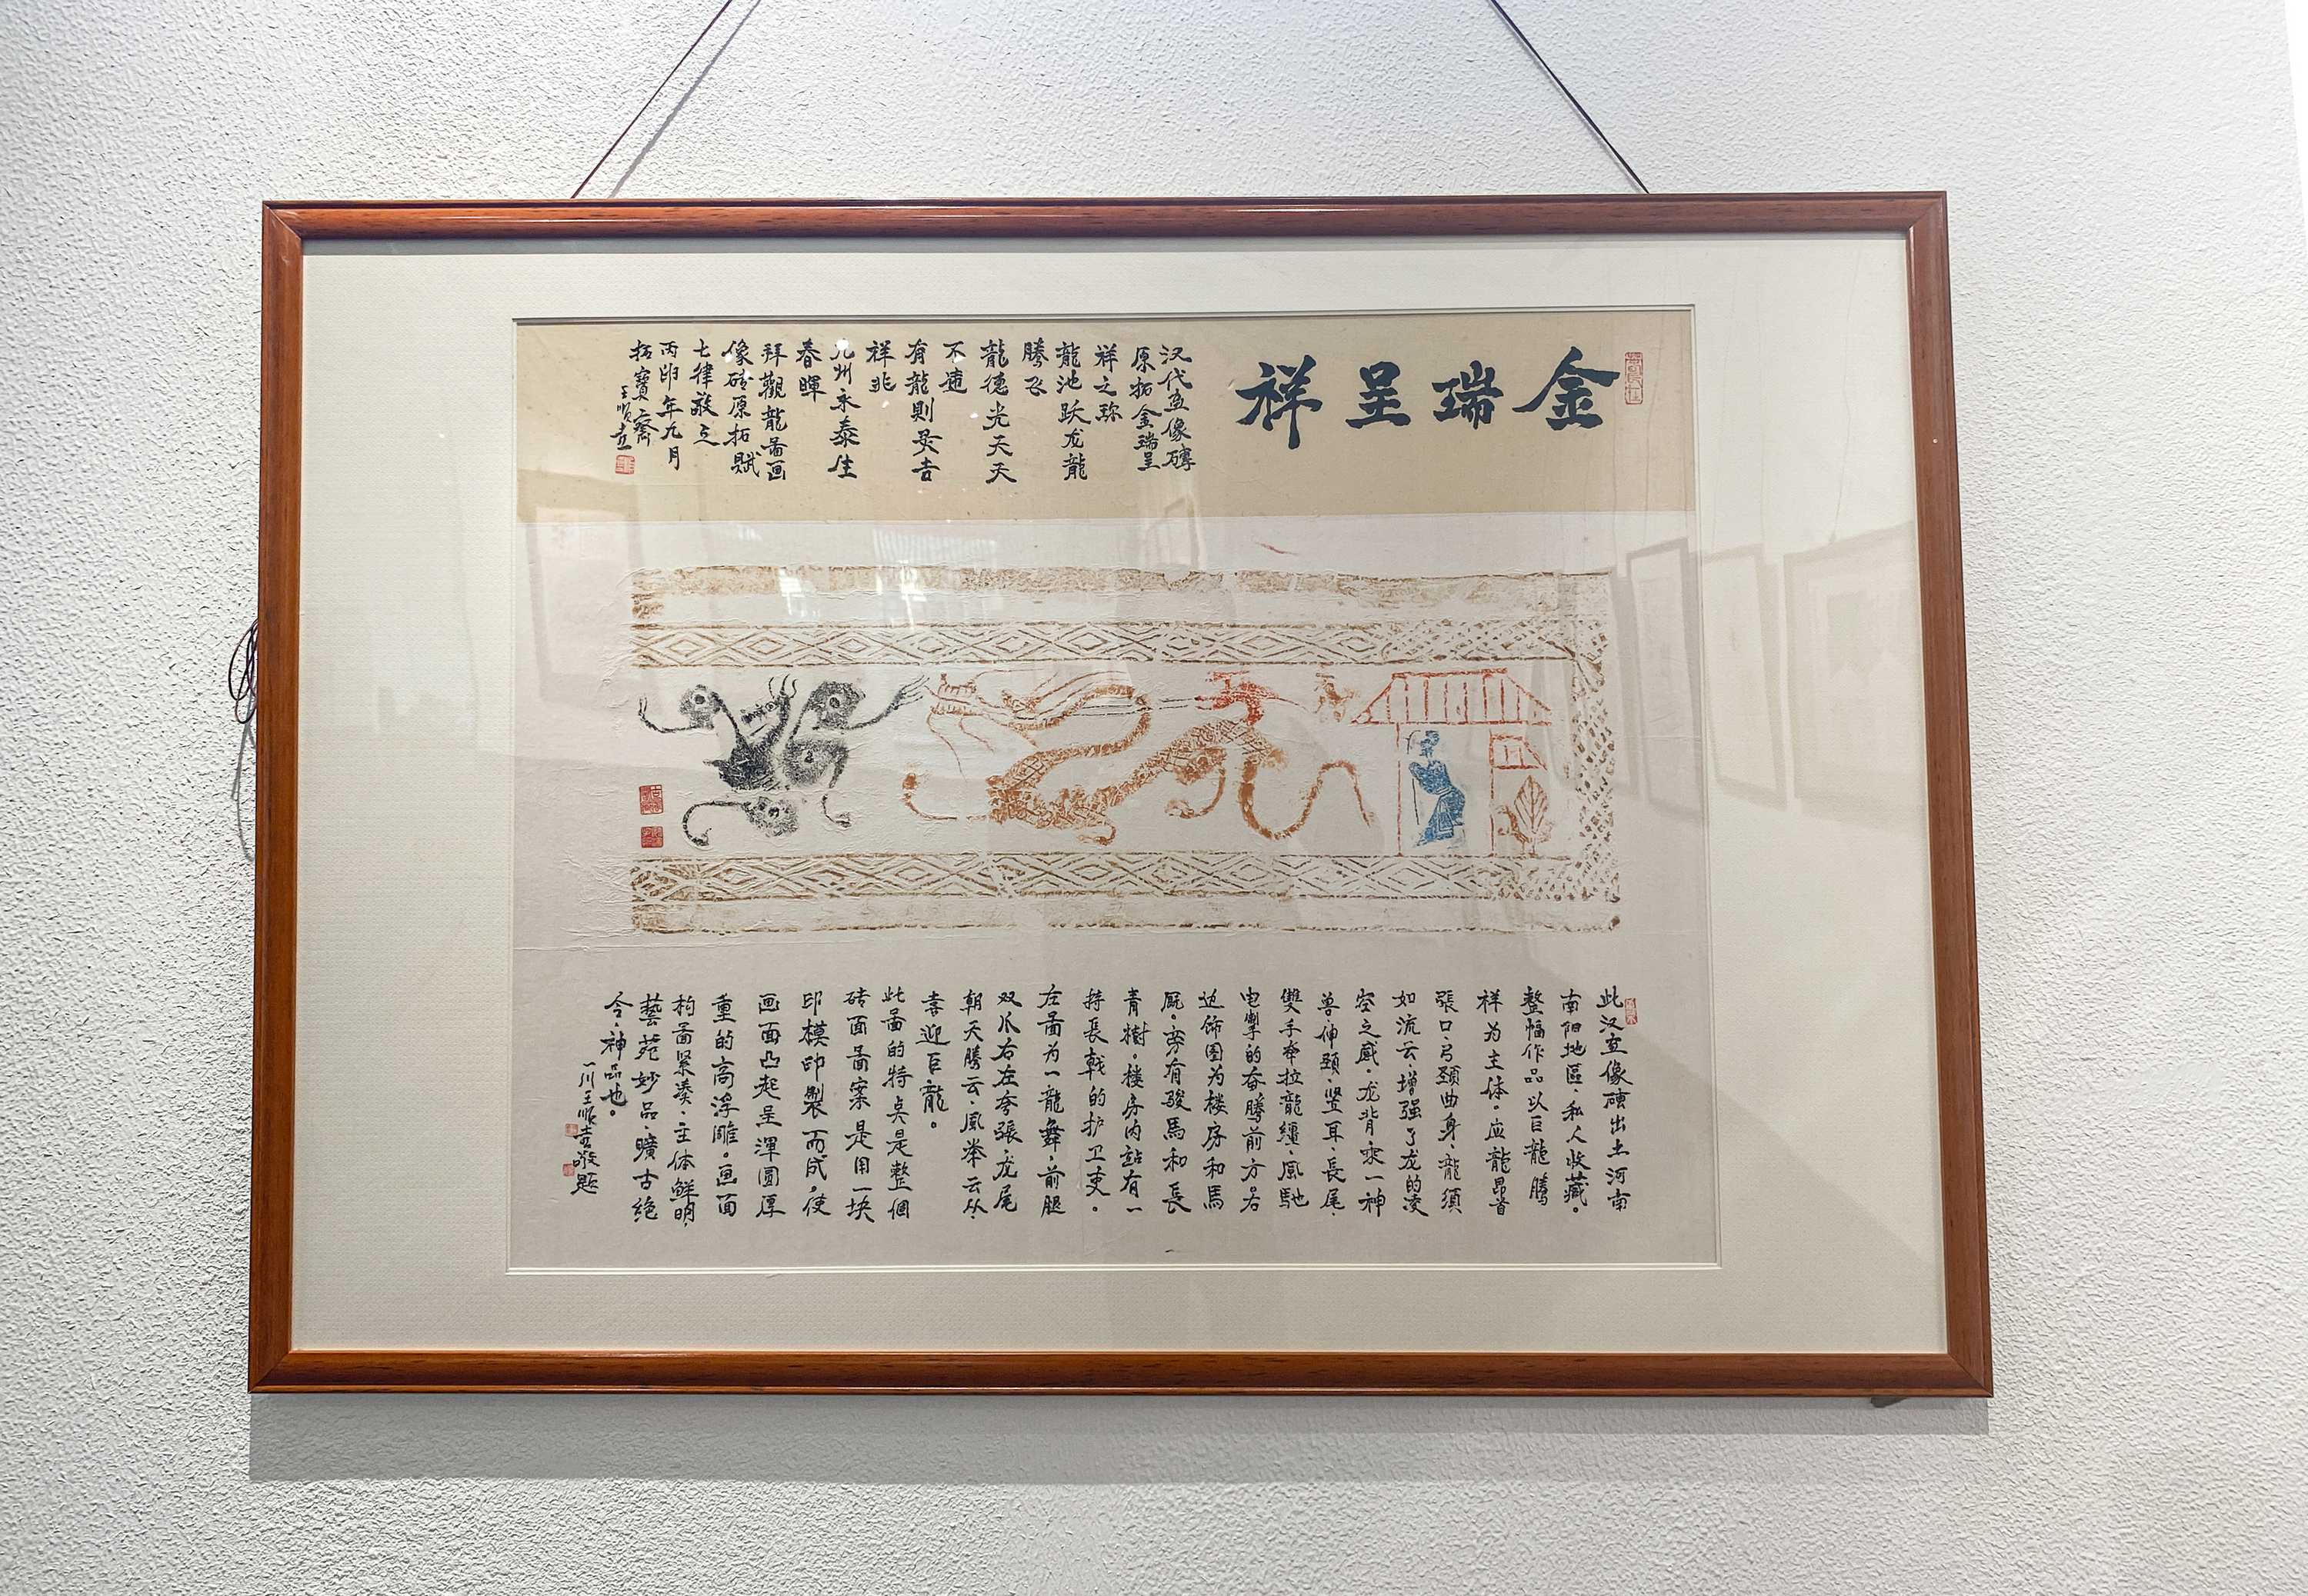 金瑞呈祥
汉代画像磚
原拓金瑞呈
祥之珎
龍池跃龙龍
騰飞
龍德光天天
不違
有龍則昃吉
祥兆
九州永泰生
春暉
拜觀龍啚画
像砖原拓賦
七律敬之
丙卯年九月
拓寶齋
王順吉
此汉画像磚出土河南
南阳地區，私人收藏。
整幅作品以巨龍騰
祥为主体。应龍昂首
張口，弓頚曲身，龍須
如流云，增强了龙的凌
空之感，龙背乘一神
兽，伸頚，竖耳，長尾，
雙手牵拉龍繮，風馳
电掣的奋騰前方。右
边饰图为楼房和馬
厩。旁有骏馬和長
青樹，楼房内站有一
持長戟的护卫吏。
左啚为一龍舞，前腿
双爪右左夸張，龙尾
朝天騰云，風举云从，
喜迎巨龍。
此啚的特点是整個
砖面啚案是用一块
印模印製而成，使
画面凸起呈渾圓厚
重的高浮雕。画面
构啚紧凑，主体鮮明，
藝苑妙品，曠古绝
今，神品也。
一川王順吉敬题